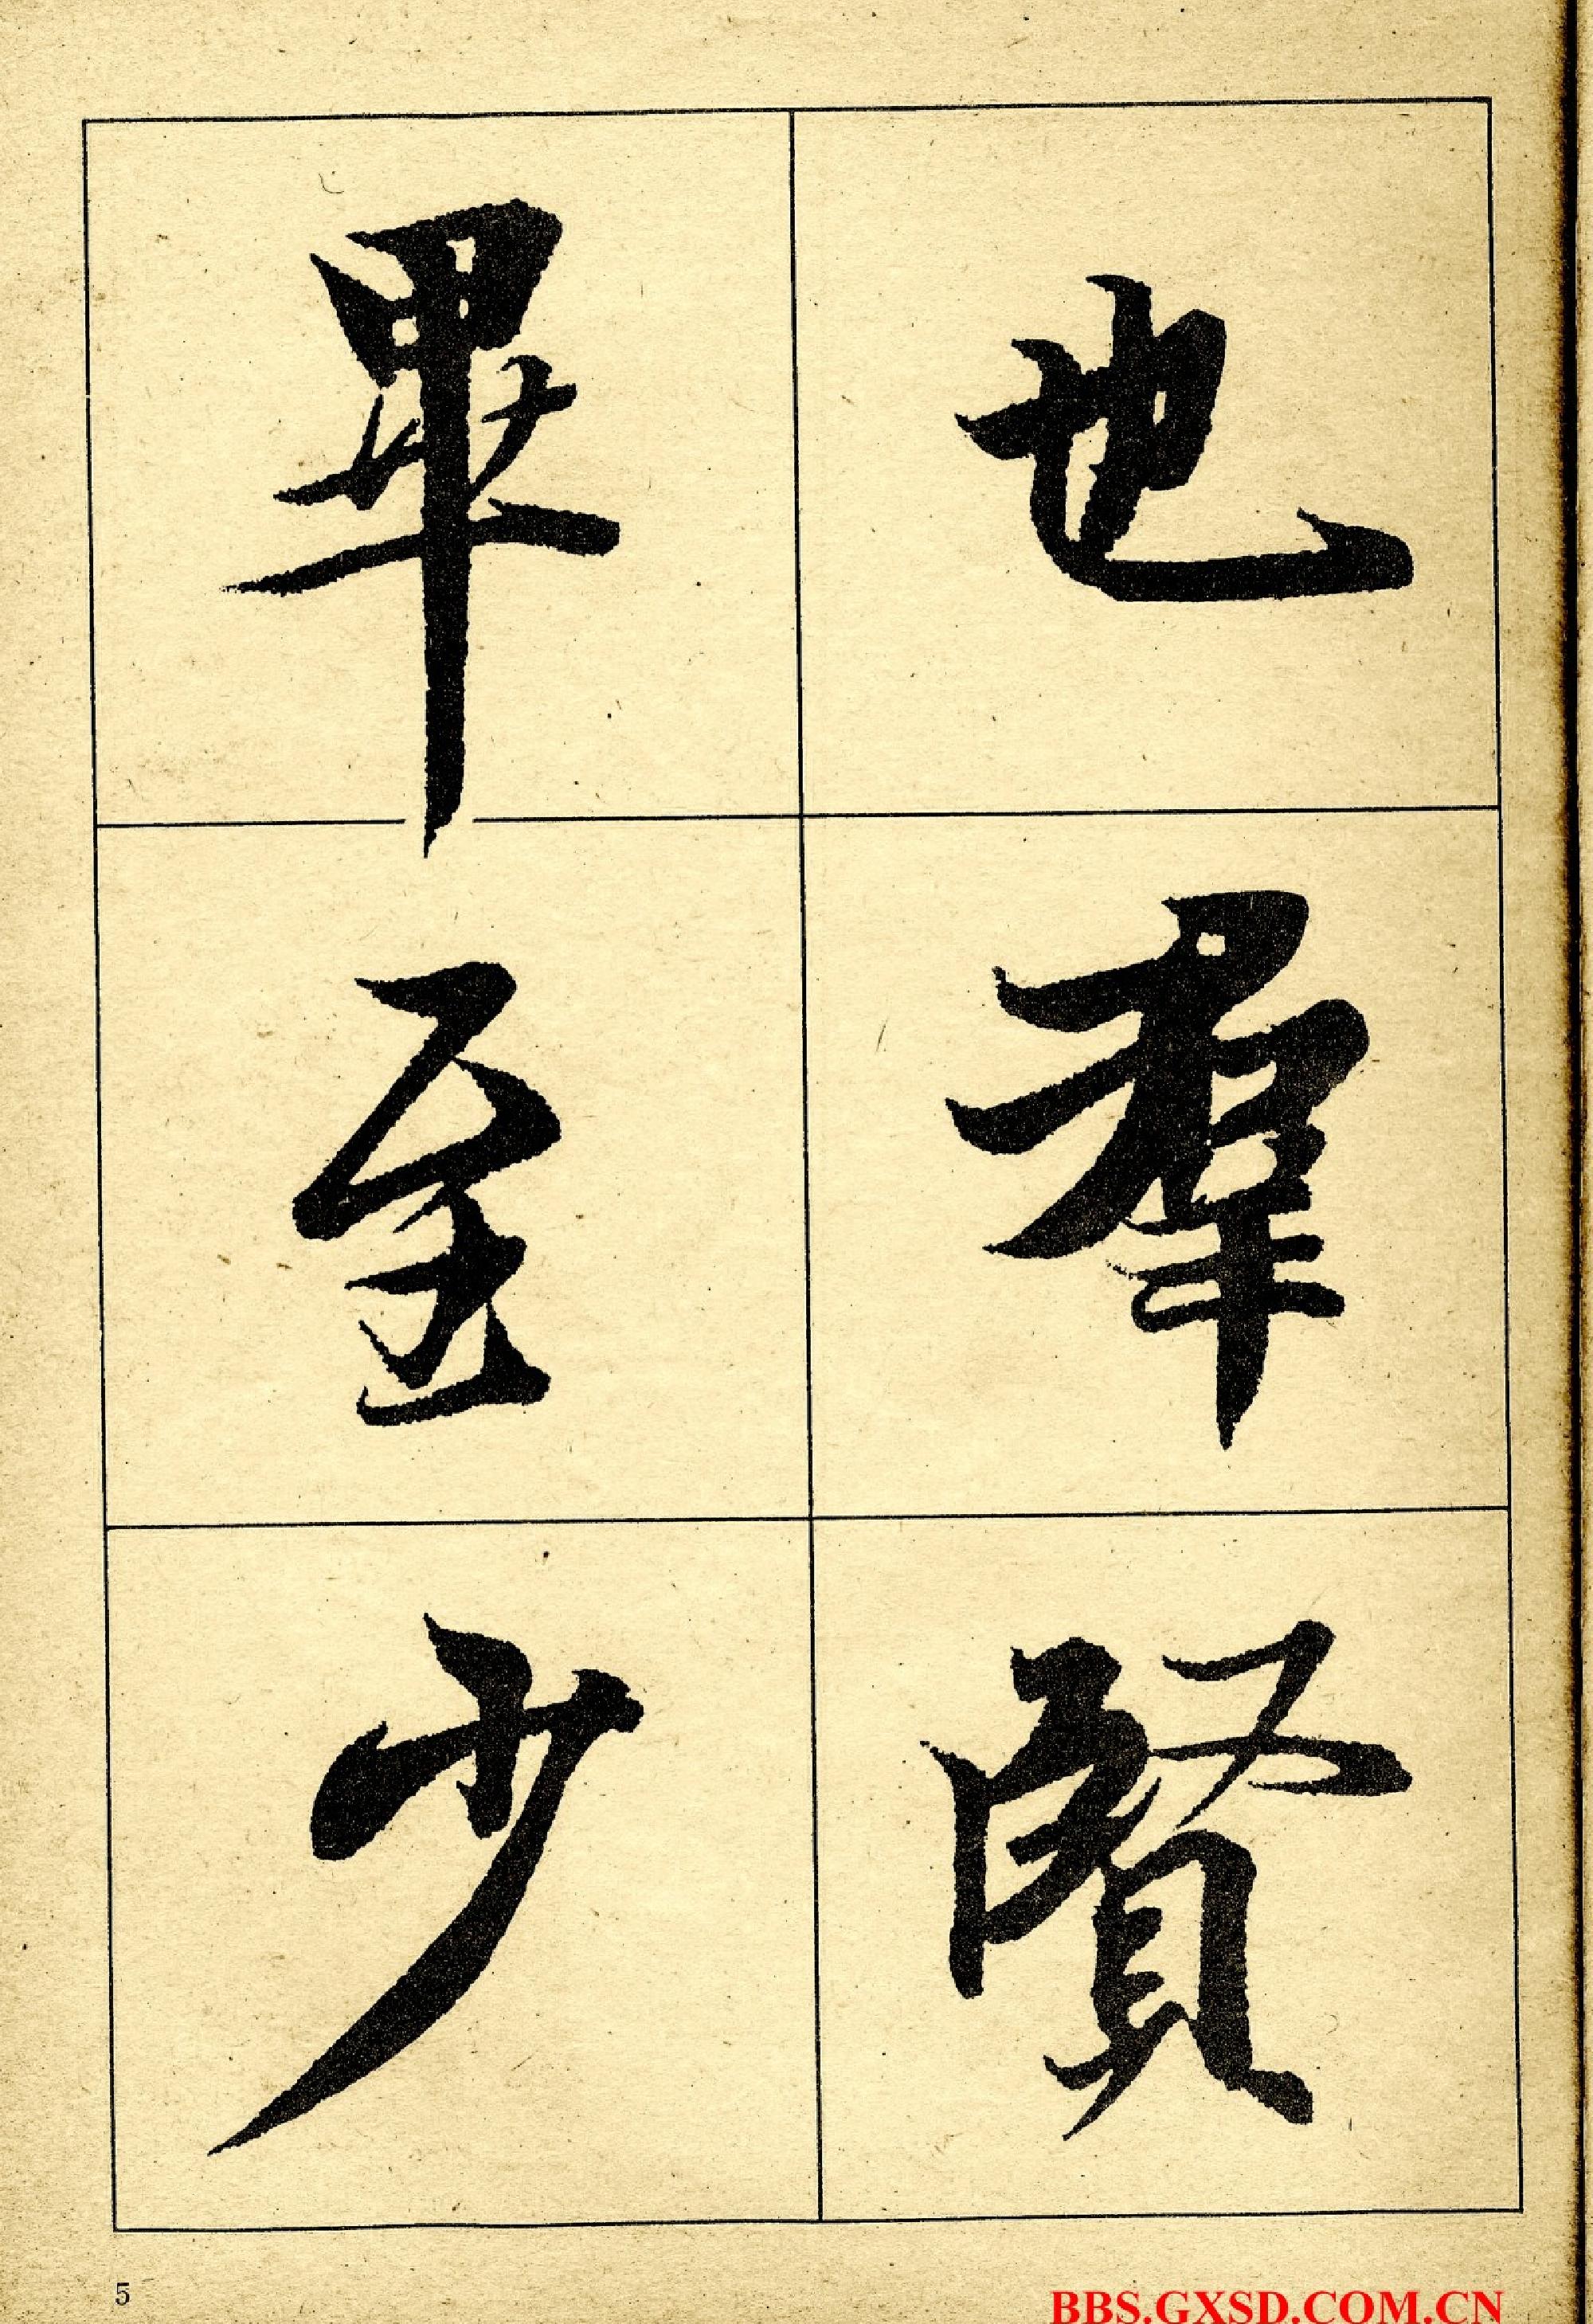 也羣賢
畢至少
5
BBS.GXSD.COM.CN